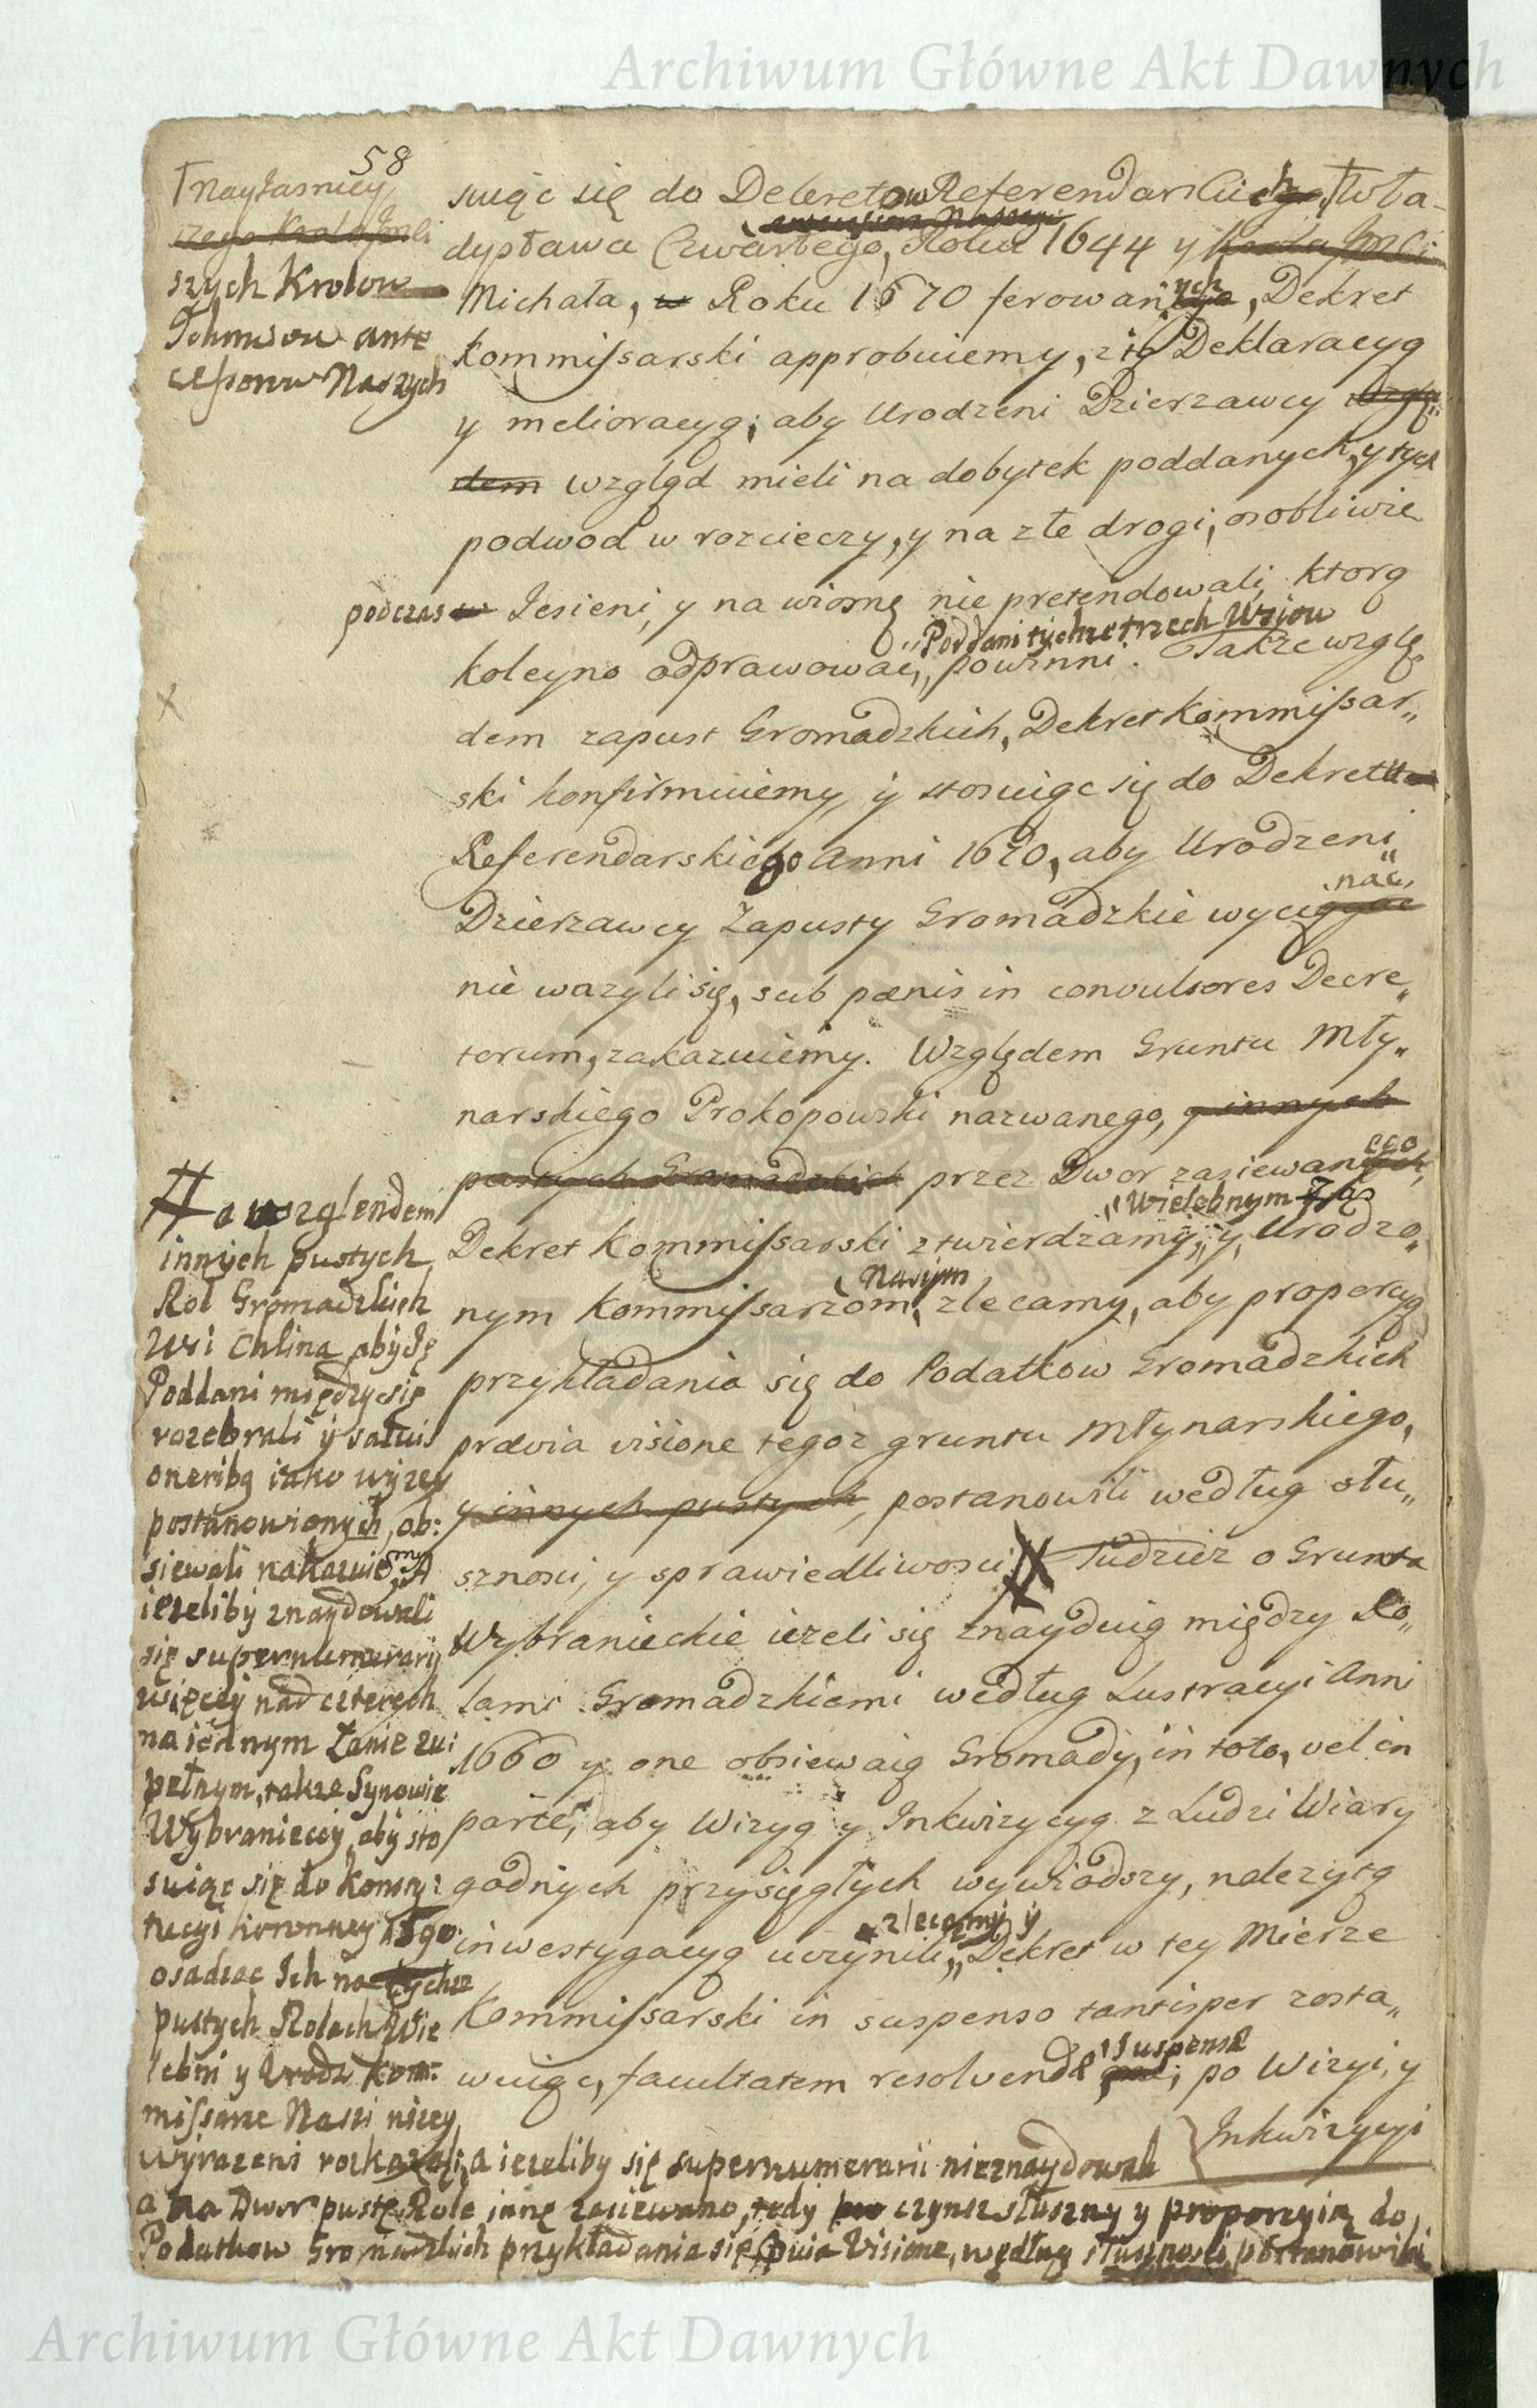 Archiwum Główne Akt Dawnych
58
Nayiasniey
szego Krola Jmci
szych Krolow
Jchmsow ante
cessorow Naszych
suiąc się do Dekretow Referendarskich, Wła-
dysława Czwartego, Roku 1644 y Krola Jmci
Michała, w Roku 1670 ferowanych, Dekret
Kommissarski approbuiemy, z tą Deklaracyą
y melioracyą; aby Urodzeni Dzierzawcy wzglę-
dem wzgląd mieli na dobytek poddanych, y tych
podwod w rozcieczy, y na złe drogi, osobliwie
podczas w Jesieni, y na wiosnę nie pretendowali, ktorą
Poddani tychze trzech Wsiow
koleyno odprawować, powinni. Takze wzglę,
dem zapust Gromadzkich, Dekret Kommissar„
ski konfirmuiemy, y stosuiąc się do Dekretu
Referendarskiego Anni 1670, aby Urodzeni
nać,
Dzierzawcy Zapusty Gromadzkie wyciągać
nie wazyli się, sub pœnis in convulsores Decre„
torum, zakazuiemy. Względem Gruntu Mły„
narskiego Prokopowski nazwanego, y innych
pustych Gromadzkich przez Dwor zasiewanych,
ego
Wielebnym
Dekret Kommissarski ztwierdzamy, y, Urodzo„
Naszym
nym Kommissarzom, zlecamy, aby proporcyą
przykładania się do Podatkow Gromadzkich
prævia visione tegoz gruntu Młynarskiego,
y innych pustych, postanowili według słu„
sznosci, y sprawiedliwosci # Tudziez o Grunta
Wybranieckie iezeli się znayduią między Ro„
lami Gromadzkiemi według Lustracyi Anni
1660 y one obsiewaią Gromady, in toto, vel in
parte, aby Wizyą y Inkwizycyą z Ludzi Wiary
godnych przysięgłych wywiodszy, nalezytą
zlecamy y
inwestygacyą uczynili, Dekret w tey Mierze
Kommissarski in suspenso tantisper zosta„
suspensa
wuiąc, facultatem resolvendi, po Wizyi, y
Inkwizycyi
# a wzglendem
innych pustych
Rol Gromadzkich
Wsi Chlina, aby Ję
Poddani między się
rozebrali y salvis
oneribg iako wyzey
postanowionych, ob:
siewali nakazuiemy, A
iezeliby znaydowali
się supernumerarii
więcey nad czterech
na iednym Łanie zu:
pełnym, takze Synowie
Wybranieccy, aby sto
suiąc się do Konsty:
tucyi koronney
osadzac Ich na tychze
pustych Rolach Wie
lebni y Urodz. Kom:
missarze Nasi nizey
wyrazeni rozkazali; a iezeliby się supernumerarii nieznaydowali
a na Dwor pustę Role innę zasiewano, tedy czynsz słuszny y proporcyią do
Podatkow Gromadzkich przykładania się pvia Visione, według słusznosci, postanowili
Archiwum Główne Akt Dawnych